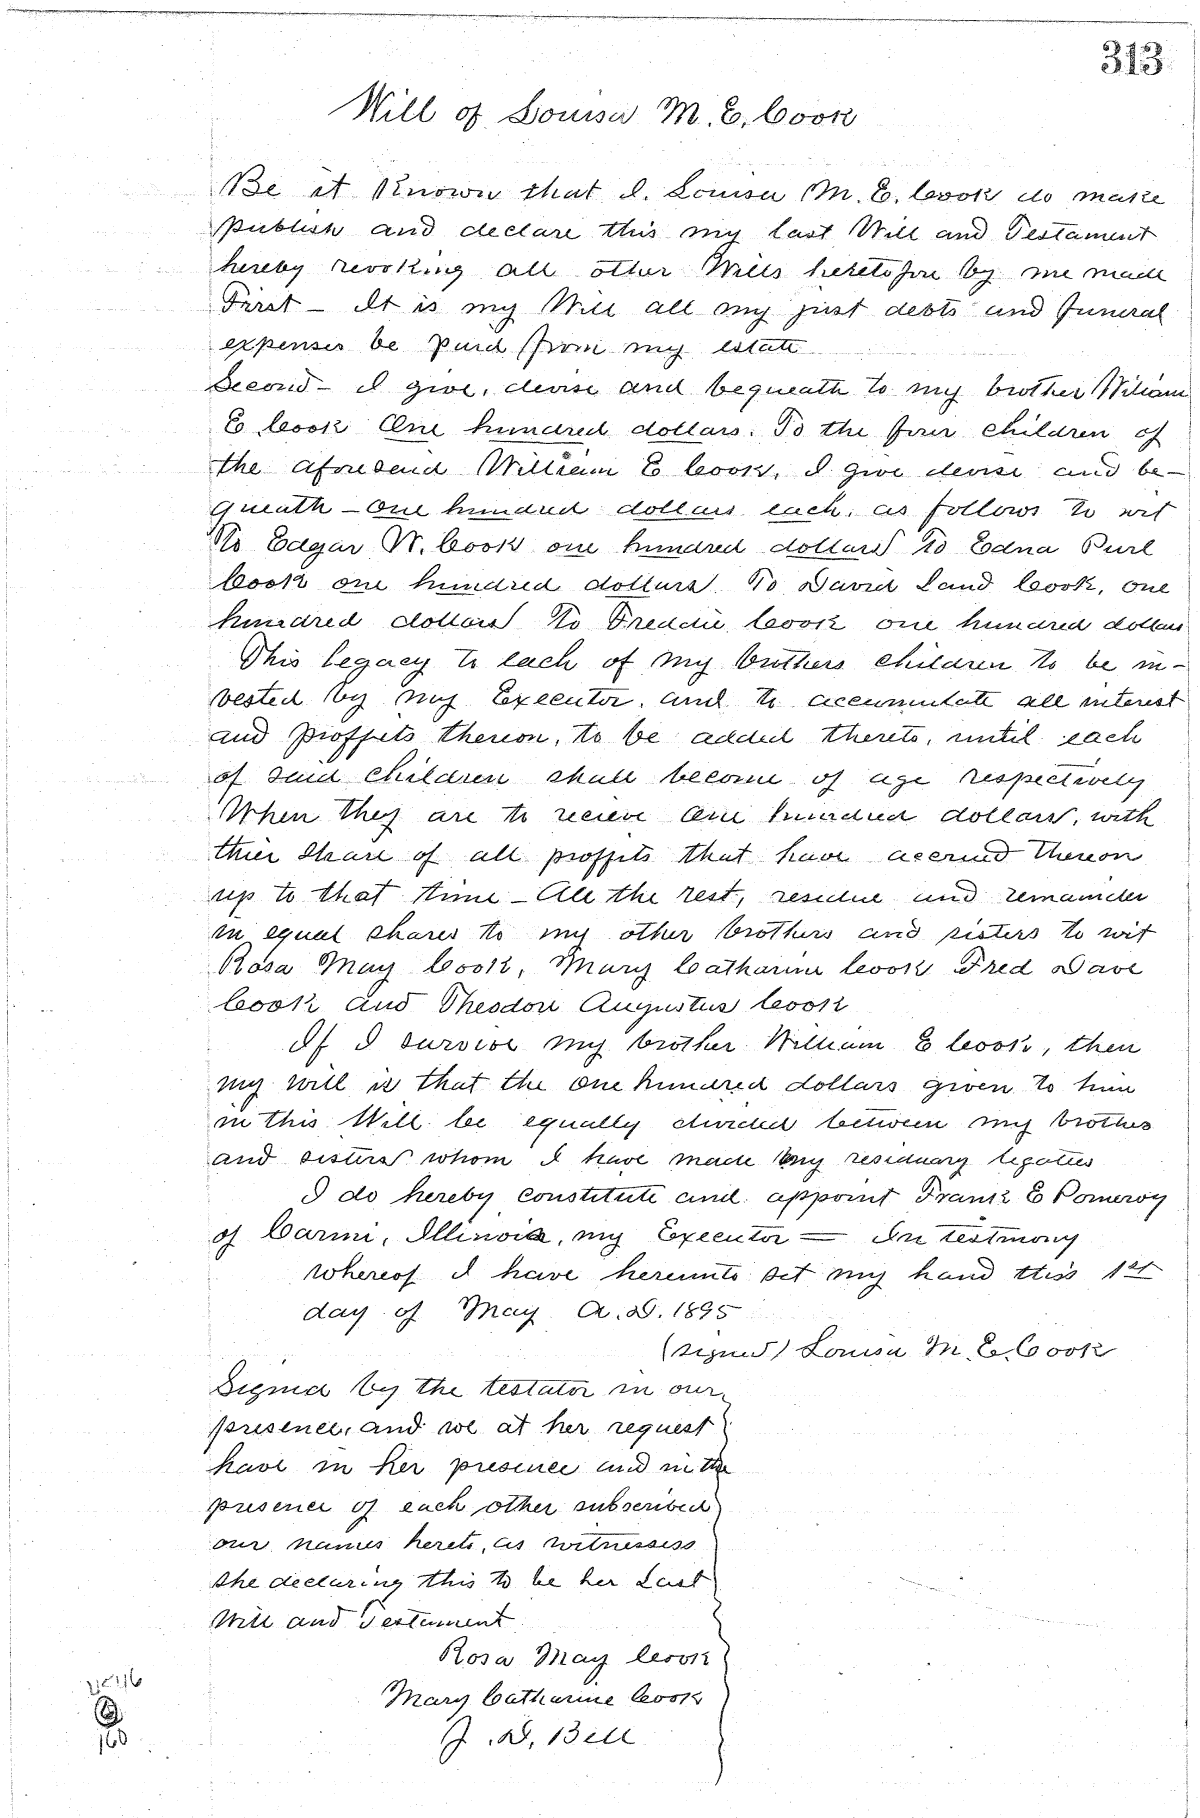 313
Will of Louisa M. E. Cook
Be it Known that I, Louisa M. E. Cook do make
publish and declare this my last Will and Testament
hereby revoking all other Wills heretofore by me made
First - It is my Will all my just debts and funeral
expenses be paid from my estate
Second - I give, devise and bequeath to my brother William
E Cook One hundred dollars. To the four children of
the aforesaid William E Cook, I give devise and be-
queath - one hundred dollars each, as follows to wit
To Edgar W. Cook one hundred dollars To Edna Purl
Cook one hundred dollars To David Land Cook, one
hundred dollars To Freddie Cook one hundred dollars
This legacy to each of my brothers children to be in-
vested by my Executor, and to accumulate all interest
and proffits thereon, to be added thereto, until each
of said children shall become of age respectively
When they are to recieve One hundred dollars, with
thier share of all proffits that have accrued thereon
up to that time - All the rest, residue and remainder
in equal shares to my other brothers and sisters to wit
Rosa May Cook, Mary Catharine Cook Fred Dave
Cook and Theodore Augustus Cook
If I survive my brother William E Cook, then
my will is that the one hundred dollars given to him
in this Will be equally divided between my brothers
and sisters whom I have made my residuary legatees
I do hereby constitute and appoint Frank E Pomeroy
of Carmi, Illinois, my Executor = In testimony
whereof I have hereunto set my hand this 1st
day of May A. D. 1895
(signed) Louisa M. E. Cook
Signed by the testator in our
presence, and we at her request
have in her presence and in the
presence of each other subscribed
our names hereto, as witnessess
she declaring this to be her Last
Will and Testament
Rosa May Cook
Mary Catharine Cook
J. D. Bell
160